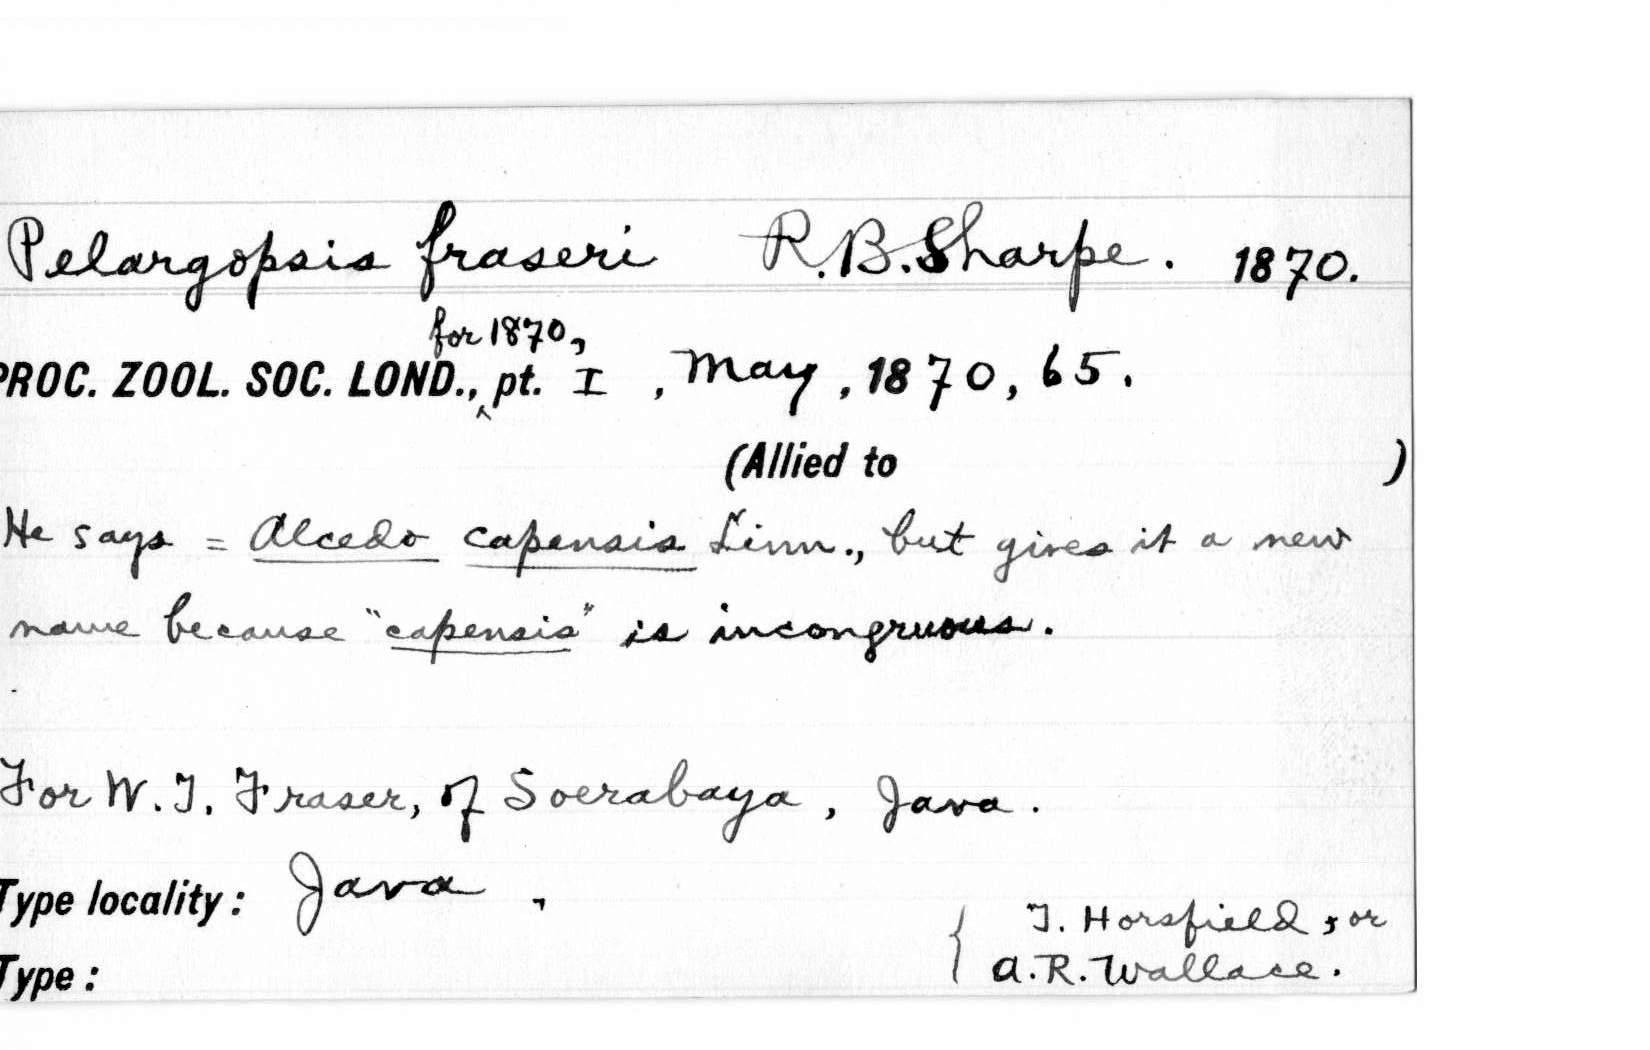 Pelargopsis fraseri R.B.Sharpe. 1870.
for 1870,
PROC. ZOOL. SOC. LOND., ^ pt. I , May , 1870, 65.
(Allied to )
He says = Alcedo capensis Linn., but gives it a new
name because "capensis" is incongruous.
For W.T. Fraser, of Soerabaya, Java.
Type locality: Java ,
{ T. Horsfield, or
Type: A.R. Wallace.